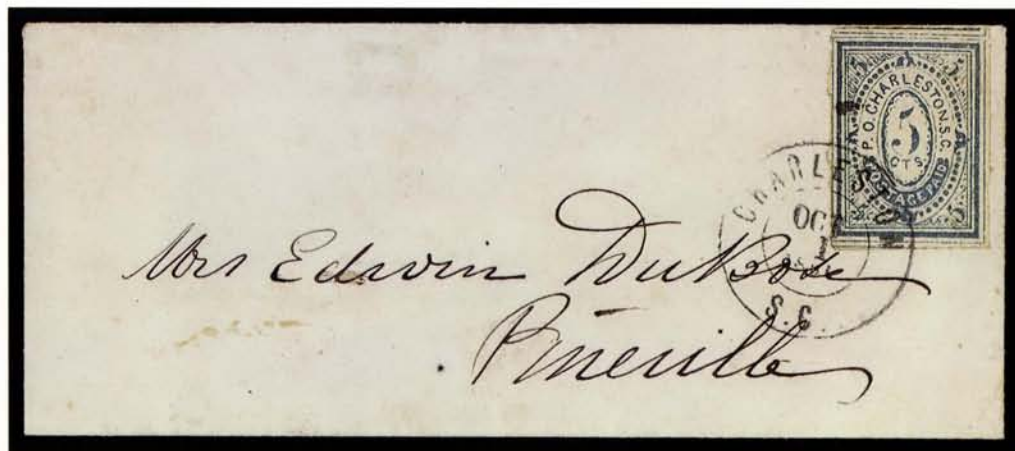 5 5
P.O. CHARLESTON. S.C.
5
CTS.
POSTAGE PAID
5
CHARLESTON
OCT
S.C.
Mrs Edwin DuBose
Pineville